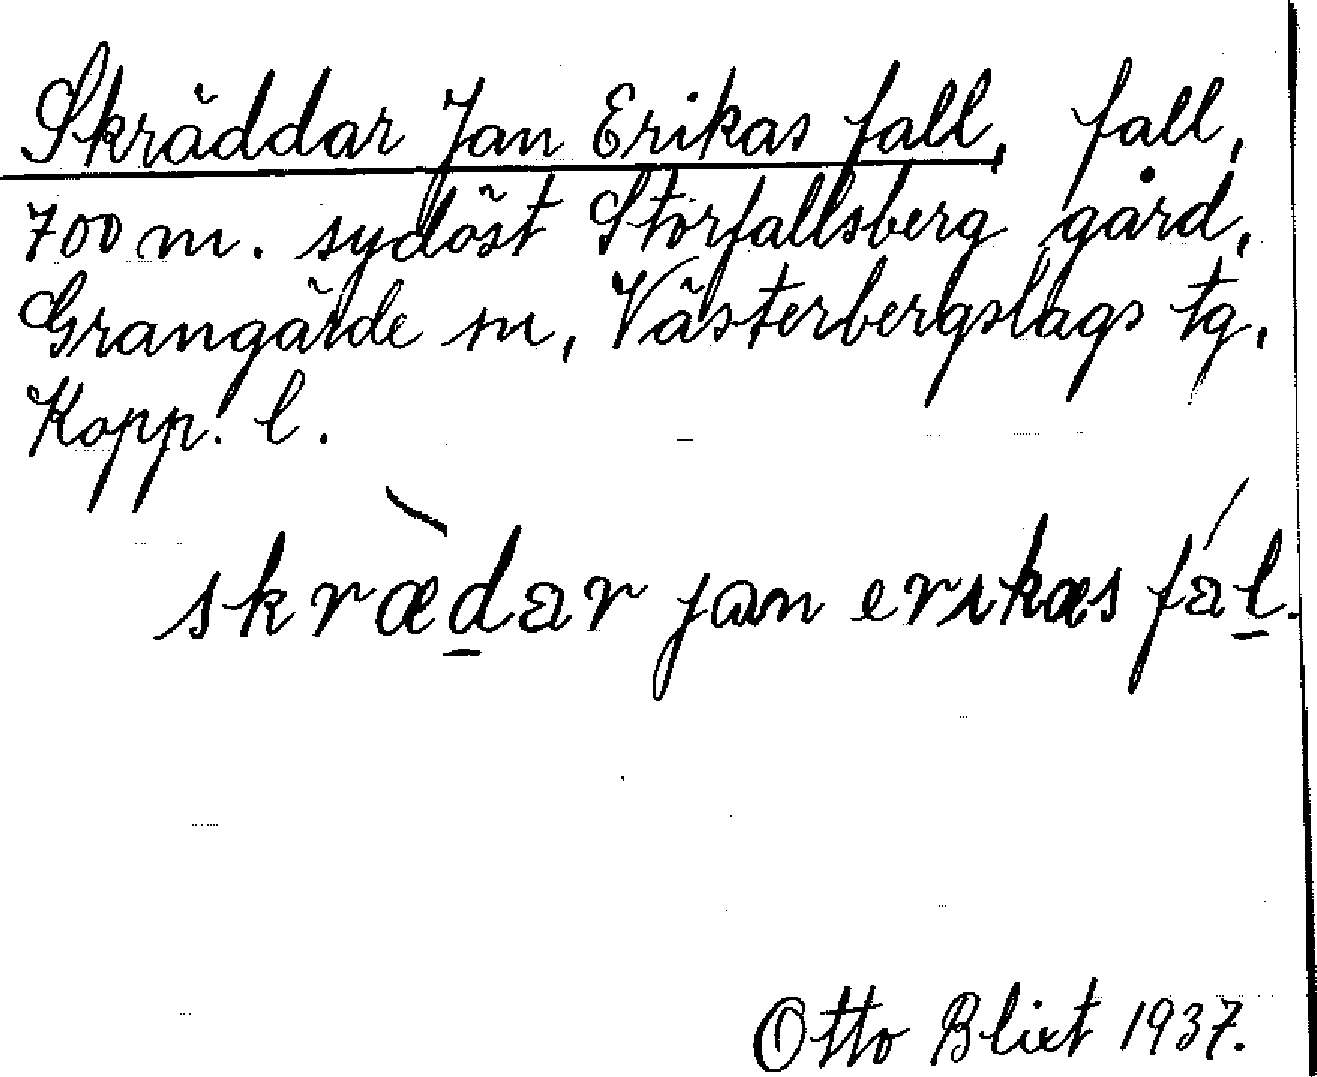 Skräddar Jan Erikas fall, fall,
700 m. sydöst Storfallsberg gård,
Grangärde sn, Västerbergslags tg,
Kopp. l.
skræ̀d̲ar jan erikas fál̲.
Otto Blixt 1937.